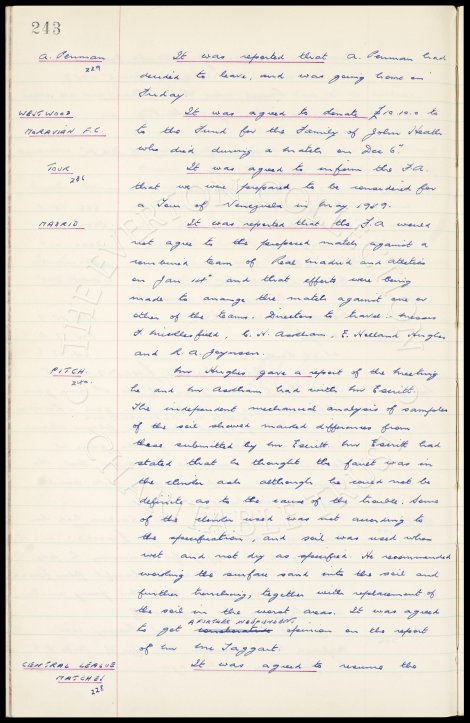 243
A. Penman
229
It was reported that A. Penman had
decided to leave, and was going home on
Friday.
WESTWOOD
MORAVIAN F.C.
It was agreed to donate £10.10.0 to
to the Fund for the Family of John Heath
who died during a match on Dec 6th
TOUR
286
It was agreed to inform the F.A.
that we were prepared to be considered for
a Tour of Venezuela in May 1959.
MADRID
It was reported that the F.A would
not agree to the proposed match against a
combined team of Real Madrid and Atletico
on Jan 1st and that efforts were being
made to arrange the match against one or
other of the teams. Directors to travel:- Messrs
F. Micklesfield, C. H. Askham, E. Holland Hughes
and R. A. Joynson.
PITCH.
Mr Hughes gave a report of the meeting
he and Mr Askham had with Mr Escritt.
The independent mechanical analysis of samples
of the soil showed marked differences from
those submitted by Mr Escritt. Mr Escritt had
stated that he thought the fault was in
the clinker ash although he could not be
definite as to the cause of the trouble. Some
of the clinker used was not according to
the specification, and soil was used when
wet and not dry as specified. He recommended
working the surface sand into the soil and
further trenching, together with replacement of
the soil in the worst areas. It was agreed
A FURTHER INDEPENDENT
to get opinion on the report
of Mr Mc Taggart.
CENTRAL LEAGUE
MATCHES
228
It was agreed to resume the
THE EVERTON